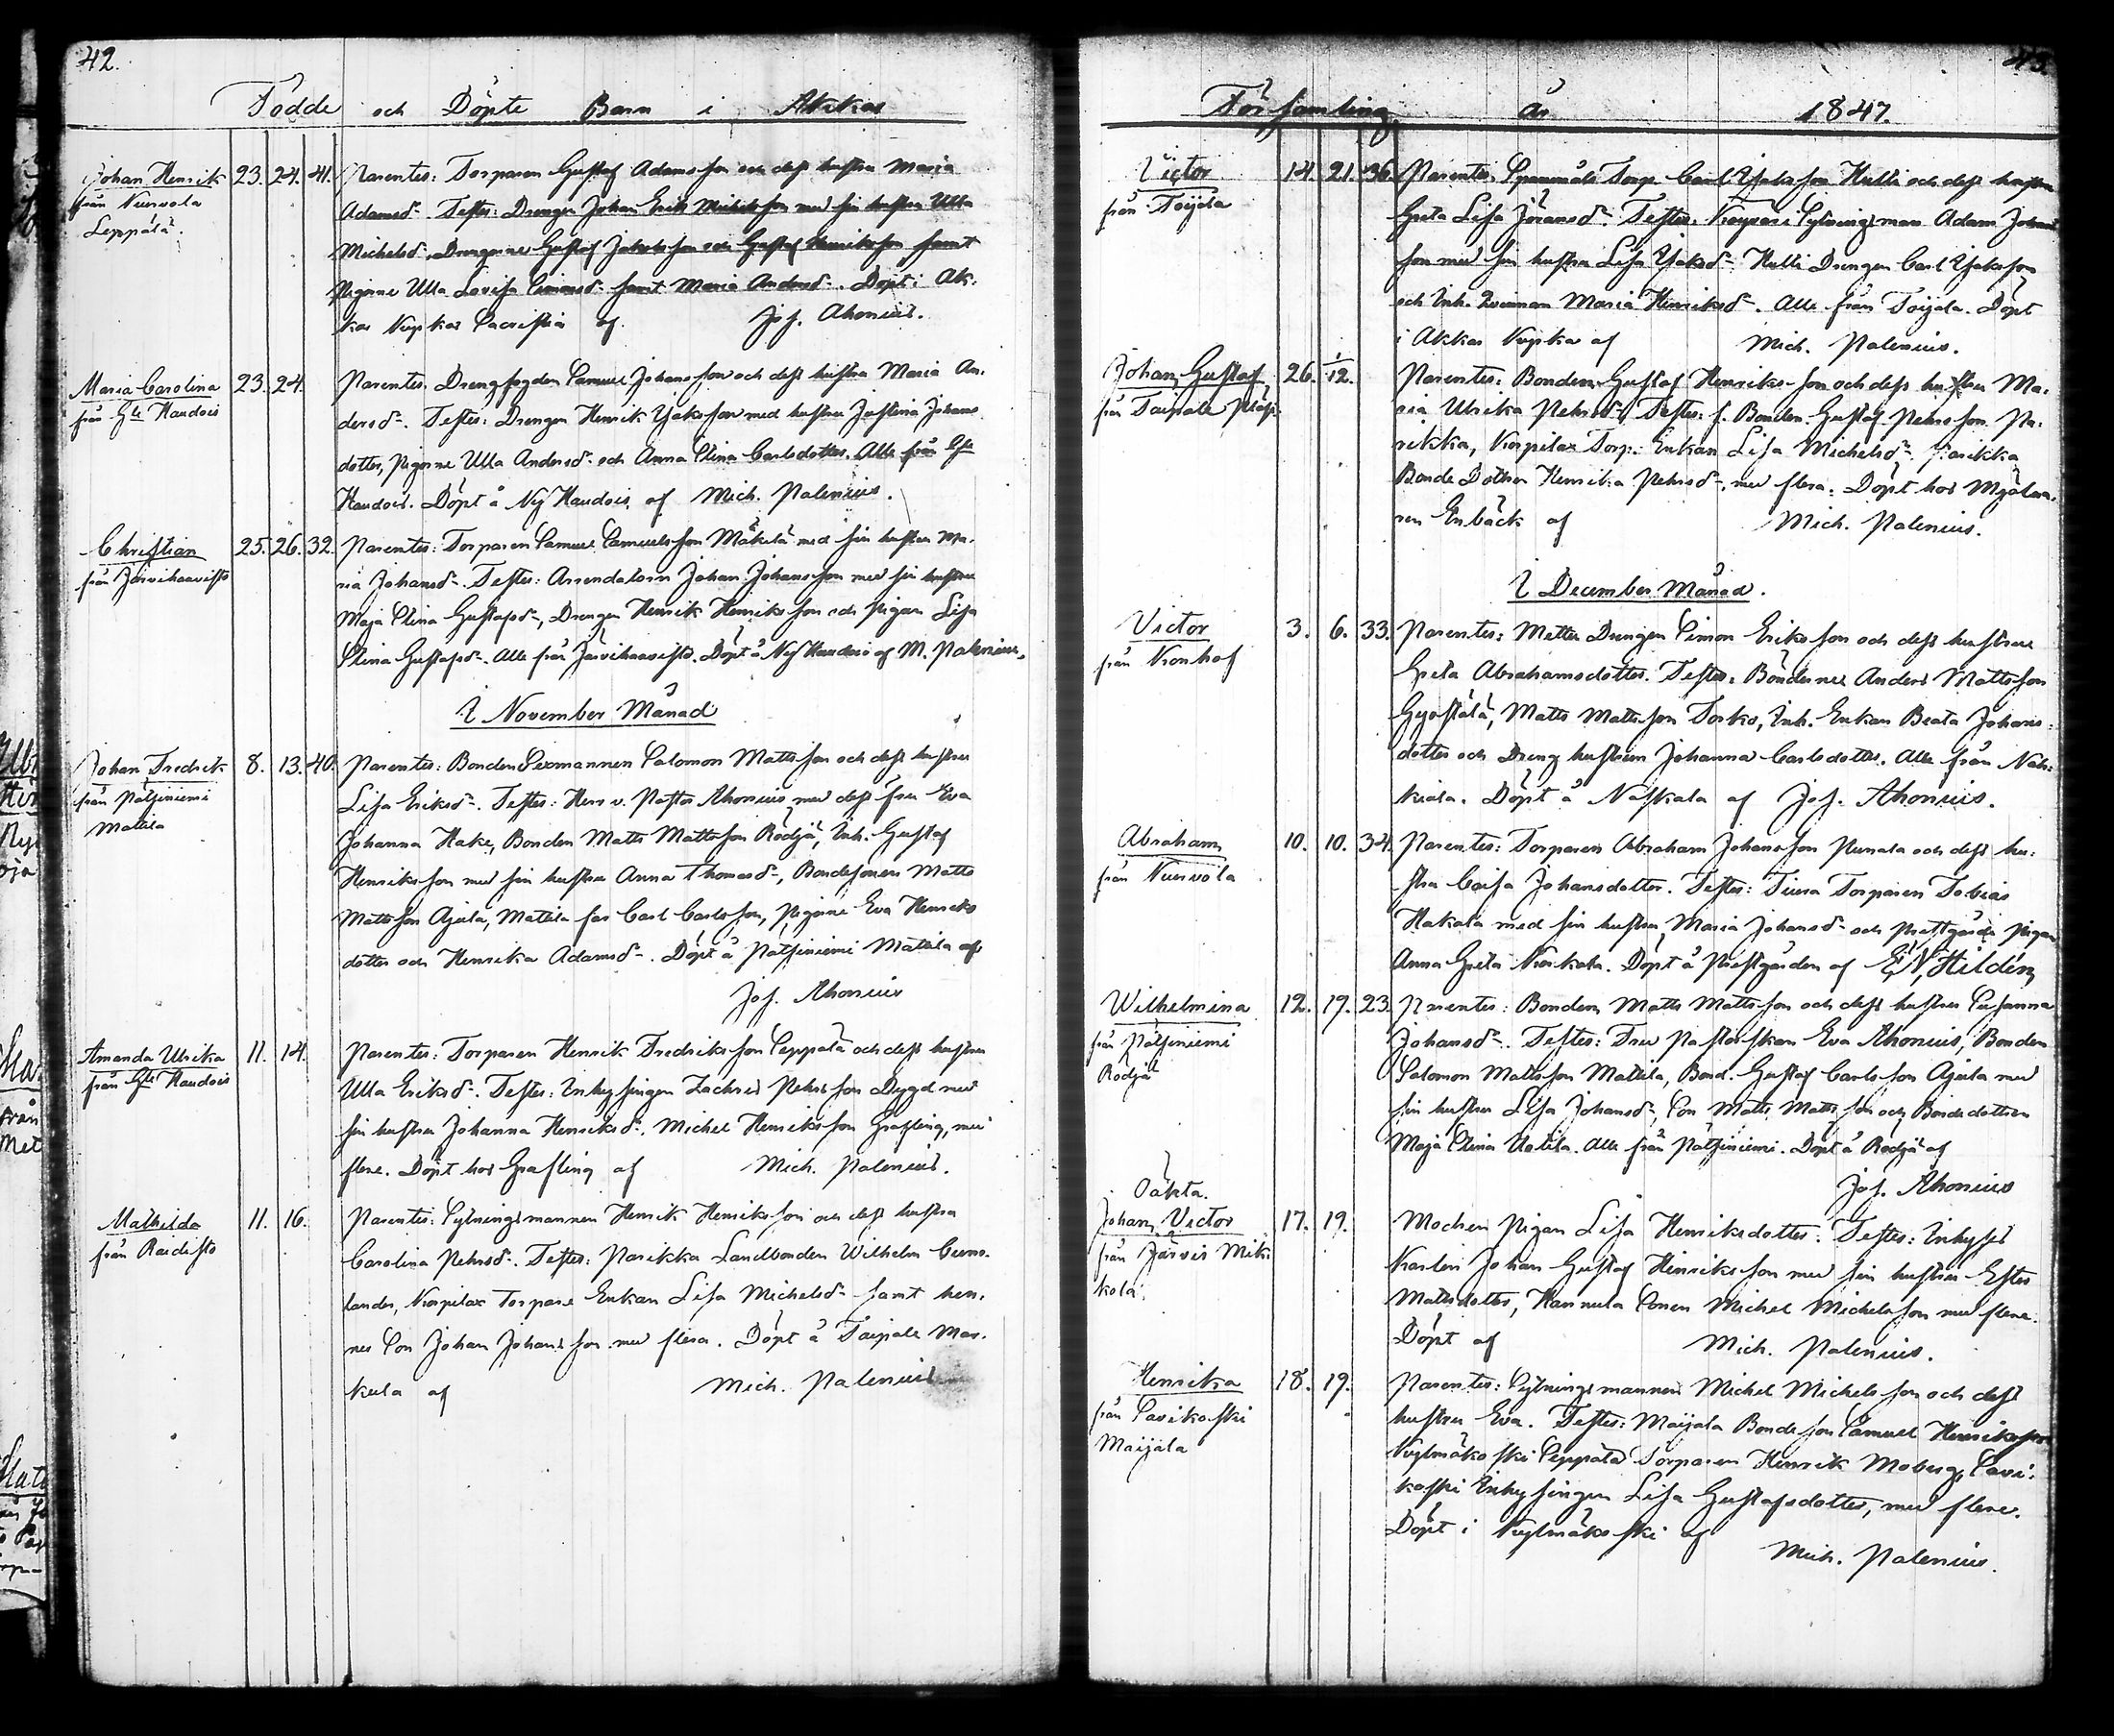 42.
Födde och Döpte Barn i Akkas
Johan Henrik 23. 24. 41. Parentes: Torparen Gustaf Adamsson och dess hustru Maria
från Nuwola Adamsd:r. Testes: Drengen Johan Erik Michelsson med sin hustru Ulla
Leppälä. Michelsd:r, Drengarne Gustaf Jakobsson och Gustaf Henriksson samt
Pigorne Ulla Lovisa Simonsd:r samt Maria Andersd:r. Döpt i Ak-
kas Kyrkas Sacristia af Jos. Ahonius.
Maria Carolina 23. 24. Parentes: Drengfogden Samuel Johansson och dess hustru Maria An-
från G:la Haudois dersd:r. Testes: Drengen Henrik Isaksson med hustru Justina Johans
dotter, Pigorne Ulla Andersd:r och Anna Stina Carlsdotter. Alla från G:la
Haudois. Döpt å Ny Haudois af Mich. Palenius.
Christian 25. 26. 32. Parentes: Torparen Samuel Samuelsson Mäkelä med sin hustru Ma-
från Järvihaavisto ria Johansd:r. Testes: Arrendatorn Johan Johansson med sin hustru
Maja Stina Gustafsd:r, Drengen Henrik Henriksson och Pigan Lisa
Stina Gustafsd:r. Alla från Järvihaavisto. Döpt å Ny Haudois af M. Palenius.
I November Månad
Johan Fredrik 8. 13. 40. Parentes: Bonden Sexmannen Salomon Mattsson och dess hustru
från Pätsiniemi Lisa Eriksd:r. Testes: Herr v. Pastor Ahonius med dess fru Eva
Mattila Johanna Hake, Bonden Matts Mattsson Rödjä, Inh. Gustaf
Henriksson med sin hustru Anna Thomasd:r, Bondesonen Matts
Mattsson Ajula, Mattila far Carl Carlsson, Pigorne Eva Henriks
dotter och Henrika Adamsd:r. Döpt å Pätsiniemi Mattila af
Jos. Ahonius
Amanda Ulrika 11. 14. Parentes: Torparen Henrik Fredriksson Seppälä och dess hustru
från G:la Haudois Ulla Eriksd:r. Testes: Inhysingen Zachris Pehrsson Dygd med
sin hustru Johanna Henriksd:r, Michel Henriksson Grafling, med
flere. Döpt hos Grafling af Mich. Palenius.
Mathilda 11. 16. Parentes: Sytningsmannen Henrik Henriksson och dess hustru
från Raidisto Carolina Pehrsd:r. Testes: Parikka Landbonden Wilhelm
lander, Korpilax Torpare Enkan Lisa Michelsd:r samt hen-
nes Son Johan Johansson med flera. Döpt å Taipale Mar-
kula af Mich. Palenius
43
Församling år 1847.
Victor 14. 21. 36. Parentes: Torp. Carl Isaksson Hulli och dess hustru
från Toijala Greta Lisa Jöransd:r. Testes: Sytningsman Adam Johans
son med sin hustru Lisa Isaksd:r. Hulli Drengen Carl Isaksson
och Inh. Qvinnan Maria Henriksd:r. Alla från Toijala. Döpt
i Akkas Kyrka af Mich. Palenius.
Johan Gustaf 26. 1/12. Parentes: Bonden Gustaf Henriksson och dess hustru Ma-
från Taipale ria Ulrika Pehrsd:r. Testes: f. Bonden Gustaf Pehrsson Pa-
rikka, Korpilax Torp. Enkan Lisa Michelsd:r. Parikka
Bonde Dottren Henrika Pehrsd:r, med flera. Döpt hos Mjölna-
ren Enbäck af Mich. Palenius.
I December Månad.
Victor 3. 6. 33. Parentes: Drengen Simon Eriksson och dess hustru
från Kronhof Greta Abrahamsdotter. Testes: Bönderne Anders Mattsson
Matts Mattsson Torko, Inh. Enkan Beata Johans-
dotter och Dreng hustrun Johanna Carlsdotter. Alla från Nah-
kiala. Döpt å af Jos. Ahonius.
Abraham 10. 10. 34. Parentes: Torparen Abraham Johansson Punala och dess hu-
från Nuwola stru Caisa Johansdotter. Testes: Torparen Tobias
Hakala med sin hustru Maria Johansd:r och Prestgårds Pigan
Anna Greta. Döpt å Prestgården af E. N. Hildén
Wilhelmina 12. 19. 23. Parentes: Bonden Matts Mattsson och dess hustru Susanna
från Pätsiniemi Johansd:r. Testes: Fru Pastorskan Eva Ahonius, Bonden
Rödjä Salomon Mattsson Mattila, Bond. Gustaf Carlsson Ajula med
sin hustru Lisa Johansd:r, Son Matts Mattsson och Bondedottren
Maja Stina Uotila. Alla från Pätsiniemi. Döpt å Rodjä af
Jos. Ahonius
Oäkta.
Johan Victor 17. 19. Modren Pigan Lisa Henriksdotter. Testes: Inhyses
från Järvis Mik- Karlen Johan Gustaf Henriksson med sin hustru Ester
kola. Mattsdotter, Hannula Sonen Michel Michelsson med flere.
Döpt af Mich. Palenius.
Henrika 18. 19. Parentes: Sytningsmannen Michel Michelsson och dess
från Savikoski hustru Eva. Testes: Maijala Bondeson Samuel Henriksson
Maijala Kylmäkoski Seppälä Torparen Henrik Moberg, Savi-
koski Inhysingen Lisa Gustafsdotter, med flere.
Döpt i Kylmäkoski af
Mich. Palenius.